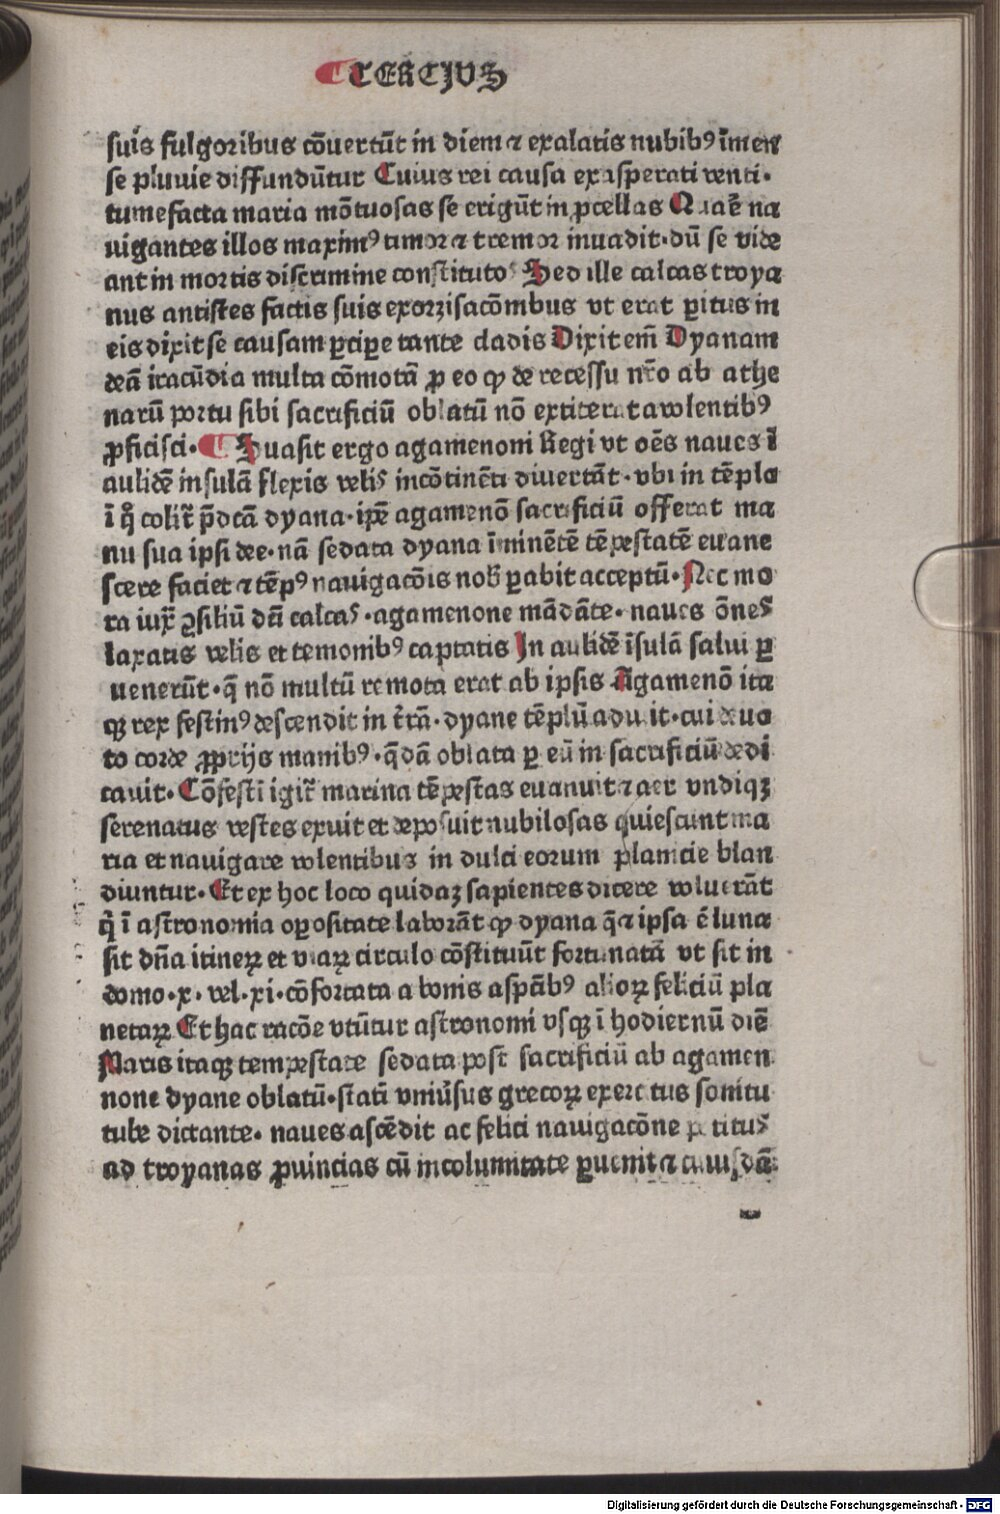 TERCIVS
suis fulgoribus cōuertūt in diem ⁊ exalatis nubibꝰ īmen
se pluuie diffundūtur Cuius rei causa exasperati venti·
tumefacta maria mōtuosas se erigūt in ꝓcellas Quaꝛ̄ na
uigantes illos maximꝰ timor ⁊ tremor inuadit· dū se vide
ant in mortis discrimine constitutos Sed ille calcas troya
nus antistes factis suis exorzisacōnibus vt erat ꝑitus in
eis dixit se causam ꝑcipe tante cladis Dixit em̄ Dyanam
deā iracūdia multa cōmotā ꝓ eo ꝙ de recessu nr̄o ab athe
narū portu sibi sacrificiū oblatū nō extiterat a volentibꝰ
ꝓficisci· Suasit ergo agamenoni Regi vt oēs naues ī
aulidē insulā flexis velis incōtinēti diuertāt· vbi in tēplo
ī ꝙ colit̄ p̄dcā dyana· ip̄e agamenō sacrificiū offerat ma
nu sua ipsi dee· nā sedata dyana īminētē tēpestatē euane
scere faciet ⁊ tēpꝰ nauigacōis nob̄ ꝑabit acceptū· Nec mo
ra iux̄ ꝯsiliū dn̄i calcas· agamenone mādāte· naues ōnes
laxatis velis et temonibꝰ captatis In aulidē īsulā salui ꝑ
uenerūt· q̄ nō multū remota erat ab ipsis Agamenō ita
qꝫ rex festinꝰ descendit in t̄rā· dyane tēplū aduit· cui deuo
to corde ꝓprijs manibꝰ· q̄dā oblata ꝑ eū in sacrificiū dedi
cauit· Cōfestī igit̄ marina tēpestas euanuit ⁊ aer vndiqꝫ
serenatus vestes exuit et deposuit nubilosas quiescunt ma
ria et nauigare volentibus in dulci eorum planicie blan
diuntur· Et ex hoc loco quidaꝫ sapientes dicere voluerāt
q̄ ī astronomia oꝑositate laborāt ꝙ dyana q̄ ⁊ ipsa ē luna
sit dn̄a itineꝝ et viaꝝ circulo cōstituūt fortunatā vt sit in
domo· x· vel· xi· cōfortata a bonis aspc̄ibꝰ alioꝝ feliciū pla
netaꝝ Et hac racōe vtūtur astronomi vsqꝫ ī hodiernū diē
Maris itaqꝫ tempestate sedata post sacrificiū ab agamen
none dyane oblatū· statī vniūsus grecoꝝ exercitus sonitu
tube dictante· naues ascēdit ac felici nauigacōne potitus
ad troyanas ꝓuincias cū incolumitate ꝑuenit ⁊ cuiusdā
Digitalisierung gefördert durch die Deutsche Forschungsgemeinschaft - DFG